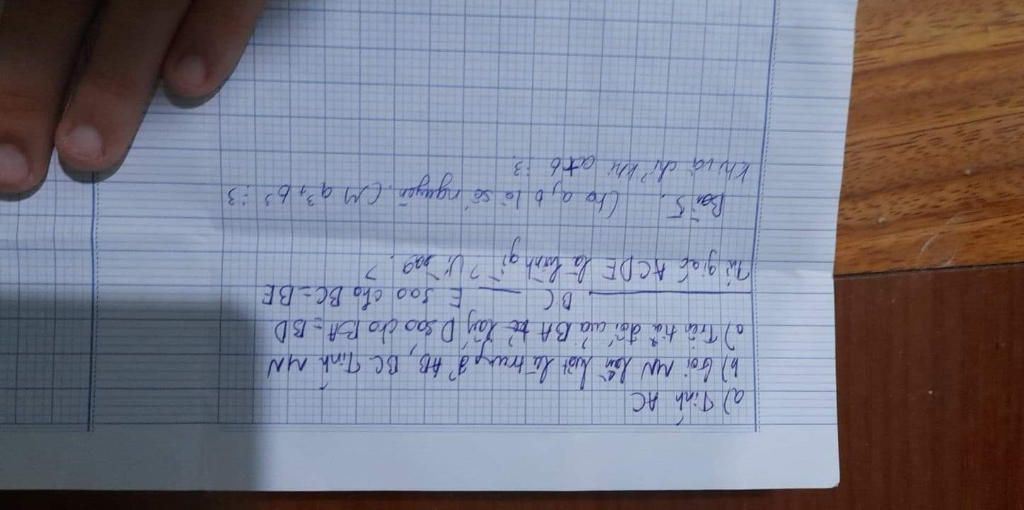 a) Tính AC
b) Gọi MN lần lượt là trung đ² AB, BC Tính MN
c) Trên tia đối của BA lấy D sao cho BA = BD
BC — E sao cho BC = BE
Tứ giác ACDE là hình gì? Vì sao?
Bài 5. Cho a, b là số nguyên. CM a³+b³ ⋮ 3
khi và chỉ khi a+b ⋮ 3.